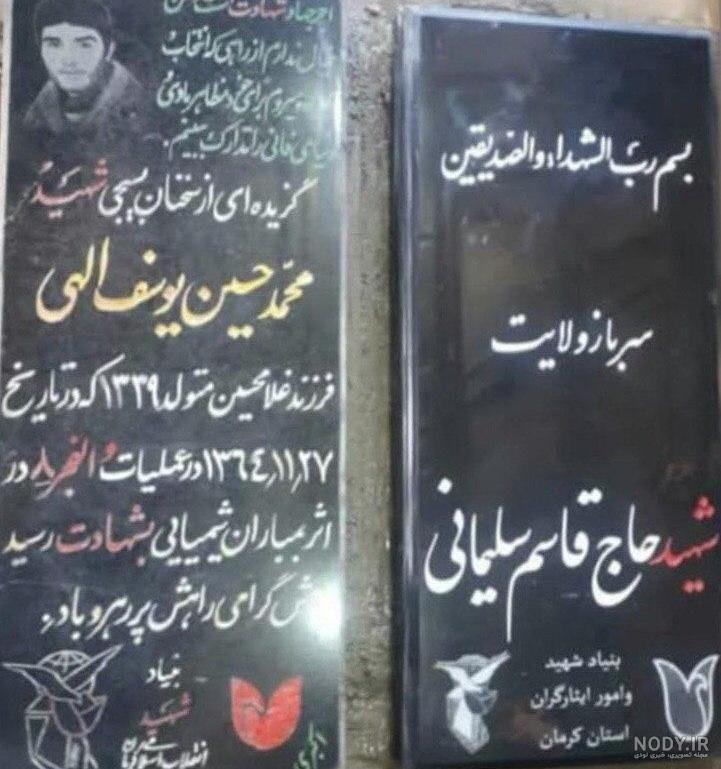 بسم رب الشهداء والصدیقین
سرباز ولایت
شهید حاج قاسم سلیمانی
بنیاد شهید
وامور ایثارگران
استان کرمان
شهادت
ندارم از راهی که انتخاب
میروم برای
فانی را تدارک ببینم.
گزیده ای از سخنان بسیجی شهید
محمد حسین یوسف الهی
فرزند غلامحسین متولد ۱۳۳۹ که در تاریخ
۱۳۶۴٫۱۱٫۲۷ در عملیات والفجر ۸ در
اثر بمباران شیمیایی بشهادت رسید
گرامی راهش پر رهرو باد.
بنیاد
شهید
انقلاب اسلامی
NODY.IR
مجله تصویری، خبری نودی